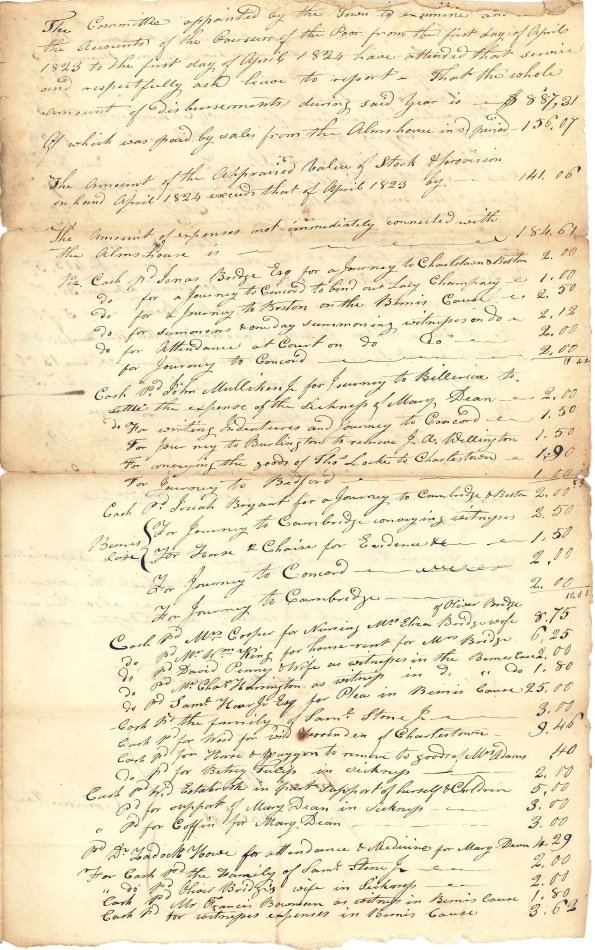 The Committee appointed by the Town to examine and
the Accounts of the Overseers of the Poor from the first day of April
1823 to the first day of April 1824 have attended that service
and respectfully ask leave to report – That the whole
amount of disbursements during said Year is – $ 887,31
Of which was paid by sales from the Almshouse in sd. period – 156.07
The Amount of the Appraised Value of Stock & provision
on hand April 1824 exceeds that of April 1823 by – 141.06
The Amount of expenses not immediately connected with
the Almshouse is – 184.61
Cash Pd. Jonas Bridge Esq for a Journey to Charlstown & Boston 2.00
do for a Journey to Concord to bind out Lucy Champney 1.00
do for a Journey to Boston on the Bemis Cause 2.50
do for summons & one day summoning witnesses on do 2.12
do for Attendance at Court on do do 2.00
for Journey to Concord 2.00
Cash Pd. John Mulliken Jr for Journey to Billerica to
the expense of the Sickness of Mary Dean 2.00
do For writing indentures and Journey to Concord 1.50
For Journey to Burlington to remove J. A. Wellington 1.50
For conveying the goods of Thos. Locke to Charlestown 1.90
For Journey to Bedford 1.00
Cash Pd. Josiah Bryant for a Journey to Cambridge & Boston 2.00
Bemis Case { For Journey to Cambridge conveying witnesses 2.50
For Horse & Chaise for Evidence &c 1.50
For Journey to Concord 2.00
For Journey to Cambridge 2.00
of Oliver Bridge
Cash Pd Mrs Cooper for Nursing Mrs Eliza Bridge wife 8.75
do Pd Mr. Wm King for house-rent for Mrs Bridge 6.25
do Pd David Penney & Wife as witnesses in the Bemis Cause 2.00
do Pd Mr. Chas. Harrington as witness in do " do 1.80
do Pd Saml. Hoar Jr. Esq for Plea in Bemis Cause 25.00
Cash Pd the family of Saml. Stone Jr 3.00
Cash Pd for Wood for of Charlestown 9.46
Cash Pd for Horse & Waggon to remove to goods of Mr Adams .40
do Pd for Betsey Tulip in sickness 2.00
Cash Pd Estabrook in part support of herself & Children 5.00
Pd for support of Mary Dean in Sickness 3.00
" Pd for Coffin for Mary Dean 3.00
Pd Dr. Zadock Howe for attendance & Medicine for Mary Dean 4.29
For Cash Pd the Family of Saml. Stone Jr 2.00
" do Pd Oliver Bridge's wife in Sickness 2.00
Cash Pd Mr Francis Bowman as witness in Bemis Cause 1.80
Cash Pd for witnesses expenses in Bemis Cause 3.62